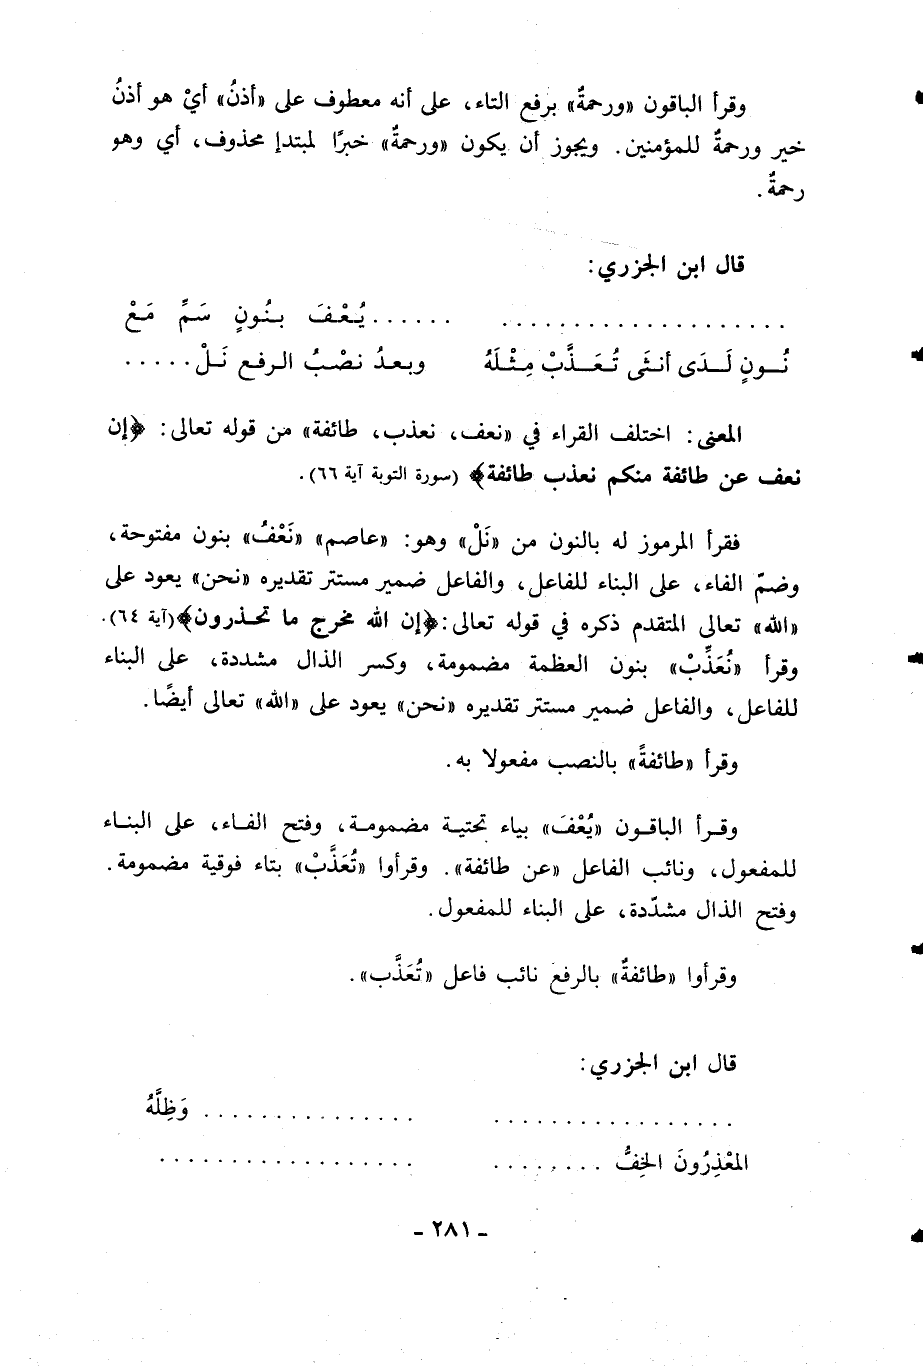 وقرأ الباقون «ورحمةٌ» برفع التاء، على أنه معطوف على «أذنُ» أيْ هو أذنُ
خير ورحمةٌ للمؤمنين. ويجوز أن يكون «ورحمةٌ» خبرًا لمبتدإ محذوف، أي وهو
رحمةٌ.
قال ابن الجزري:
.................... ......يُعْفَ بِنُونٍ سَمِّ مَعْ
نُونٍ لَدَى أنثَى تُعَذَّبْ مِثْلَهُ وبعدُ نصْبُ الرفع نَلْ.....
المعنى: اختلف القراء في «نعف، نعذب، طائفة» من قوله تعالى: ﴿إن
نعف عن طائفة منكم نعذب طائفة﴾ (سورة التوبة آية ٦٦).
فقرأ المرموز له بالنون من «نَلْ» وهو: «عاصم» «نَعْفُ» بنون مفتوحة،
وضمّ الفاء، على البناء للفاعل، والفاعل ضمير مستتر تقديره «نحن» يعود على
«الله» تعالى المتقدم ذكره في قوله تعالى: ﴿إن الله مخرج ما تحذرون﴾ (آية ٦٤).
وقرأ «نُعَذِّبْ» بنون العظمة مضمومة، وكسر الذال مشددة، على البناء
للفاعل، والفاعل ضمير مستتر تقديره «نحن» يعود على «الله» تعالى أيضًا.
وقرأ «طائفةً» بالنصب مفعولا به.
وقرأ الباقون «يُعْفَ» بياء تحتية مضمومة، وفتح الفاء، على البناء
للمفعول، ونائب الفاعل «عن طائفة». وقرأوا «تُعَذَّبْ» بتاء فوقية مضمومة.
وفتح الذال مشدّدة، على البناء للمفعول.
وقرأوا «طائفةٌ» بالرفع نائب فاعل «تُعَذَّب».
قال ابن الجزري:
................. ............... وَظِلَّهُ
المعْذِرُونَ الخِفُّ ........ ..................
- ٢٨١ -